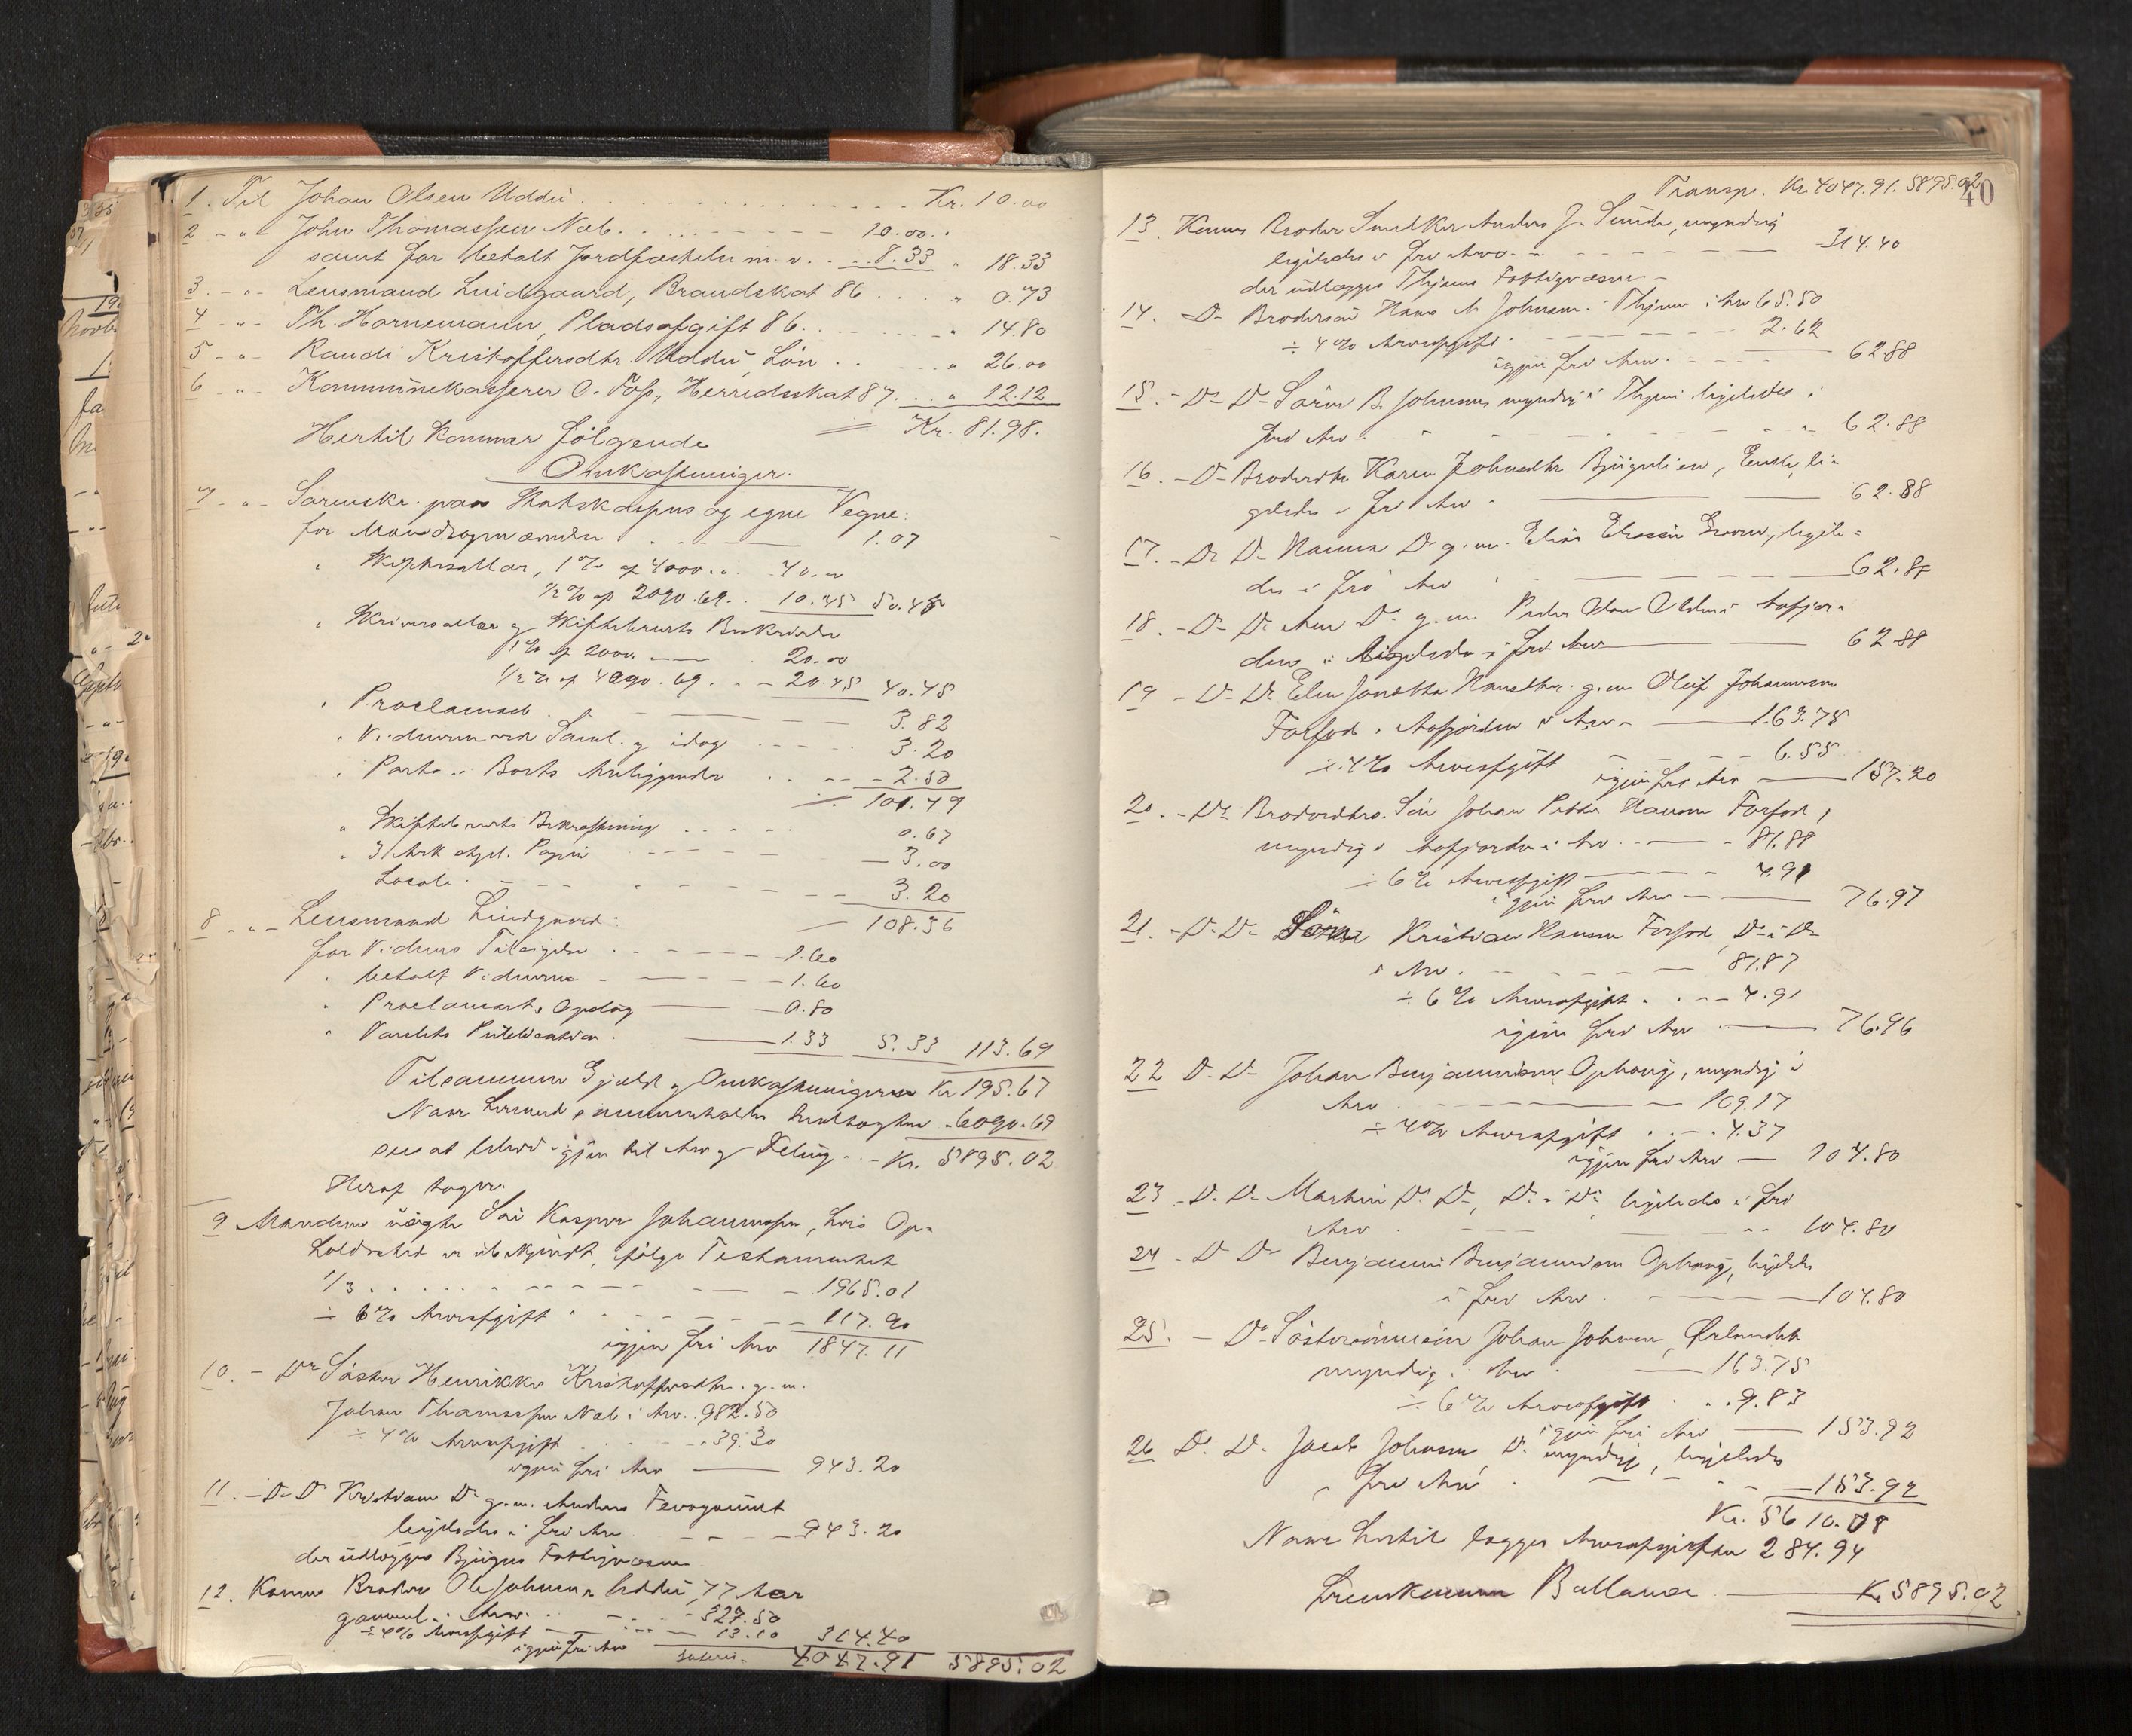 1. Til Johan Olsen Uddu . . . Kr. 10.00
2 - " - John Thomassen Næb . . . 10.00.
samt for betalt Jordfæstelse m. v. . . 8.33 " 18.33
3 - " - Lensmand Lindgaard, Brandskat 86 . . . " 0.73
4 - " - Th. Hornemann, Pladsafgift 86 . . . " 14.80
5 - " - Randi Kristoffersdtr. Uddu, Løn . . . " 26.00
6 " Kommunekasserer O. Foss, Herredsskat 87 . . " 12.12
Kr. 81.98.
Hertil kommer følgende
Omkostninger.
7 - " - Sorenskr. paa Statskassens og egne Vegne:
for 1.07
" Skiftesallær, 1 % af 4000 . . 40.00
½ % af 2090.69 . . 10.45 50.45
" Skriversallær og Skiftebrevets Beskrivelse
1 % af 2000. — 20.00
½ % af 4090.69 . . - 20.45 40.45
" Proclamaet . — 3.82
" Vidnerne ved Saml. og idag . . . 3.20
" Porto Bortsættelse - 2.50
101.49
" Skiftebrevets Bekræftning . . . 0.67
" 3 Ark chgl. Papir - - - 3.00
Locale . - - - 3.20
108.36
8 - " - Lensmand Lindgaard:
for Vidners Tilsigelse . . . 1.60
" betalt Vidnerne - — 1.60
" Proclamaets Opslag — 0.80
" Varslets Publication . — 1.33 5.33 113.69
Tilsammen Gjæld og Omkostningerne Kr 195.67
Naar hermed sammenholdes Indtægten - 6090.69
sees at blive igjen til Arv og Deling . - Kr. 5895.02
Heraf tager:
9 Mandens uægte Søn Kasper Johannessen, hvis Op-
holdssted er ubekjendt, ifølge Testamentet
1/3 . . . 1965.01
÷ 6 % Arveafgift - 117.90
igjen fri Arv 1847.11
10. - Do Søster Henrikke Kristoffersdtr. g. m.
Johan Thomassen Næb i Arv . 982.50
÷ 4 % Arveafgift . . . 39.30
igjen fri Arv — 943.20
11. - Do Do Do g. m. Anders
ligeledes i fri Arv - - - 943.20
der udlægges Bjugns Fattigvæsen
12. Konens Broder Ole Johnsen Uddu, 77 Aar
gammel i Arv . . . 327.50
÷ 4 % Arveafgift - - - 13.10 314.40
igjen fri Arv
4047.91 5895.02
Transp. Kr. 4047.91. 5895.02
40
13. Konens Broder Anders J. Sunde, myndig
ligeledes i fri Arv - - - 314.40
der udlægges Fattigvæsen -
14. - Do Brodersøn Hans A. Johnsen i Arv 65.50
÷ 4 % Arveafgift . . . 2.62
igjen fri Arv . - - - 62.88
15. - Do Do Søren B. Johnsen myndig ligeledes i
fri Arv . - - - 62.88
16. - Do Broderdtr. Karen Johnsdtr , Enke, li-
geledes i fri Arv . — 62.88
17. - Do Do Hanna Do g. m. Elias , ligele-
des i fri Arv . - - 62.88
18. - Do Do Do g. m. Peder Olsen i Aafjor-
den i ligeledes i fri Arv — 62.88
19 - Do Do Elen Hansdtr. g. m. Oluf Johannesen
Forfod i Aafjorden i Arv — 163.75
÷ 4 % Arveafgift - - 6.55
igjen fri Arv — 157.20
20. - Do Broderdtrs. Søn Johan Petter Hansen Forfod,
myndig i Aafjorden i Arv . . — 81.88
÷ 6 % Arveafgift — - 4.91
igjen fri Arv — 76.97
21. - Do Do Søn Kristian Hansen Forfod, Do i Do
i Arv . - - - 81.87
÷ 6 % Arveafgift . . . 4.91
igjen fri Arv — 76.96
22 Do Do Johan Benjaminsen Ophaug, myndig i
Arv . — 109.17
÷ 4 % Arveafgift . . . 4.37
igjen fri Arv — 104.80
23 - Do Do Martin Do Do, Do i Do ligeledes i fri
Arv . - - 104.80
24 - Do Do Benjamin Benjaminsen Ophaug, ligeledes
i fri Arv . — 104.80
25. - Do Søstersønnesøn Johan Johnsen, Ørlandet
myndig i Arv . — 163.75
÷ 6 % Arveafgift . . . 9.83
igjen fri Arv — 153.92
26 Do Do Jacob Johnsen, Do myndig, ligeledes
i fri Arv . - - - 153.92
Kr. 5610.08
Naar hertil lægges Arveafgiften 284.94
fremkommer Ballance — Kr 5895.02